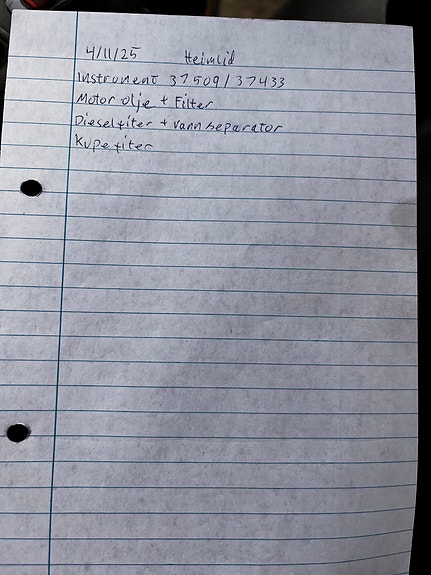 4/11/25 Heimlid
Instrument 37509/37433
Motor olje + Filter
Dieselfiter + vannseparator
Kupefiter